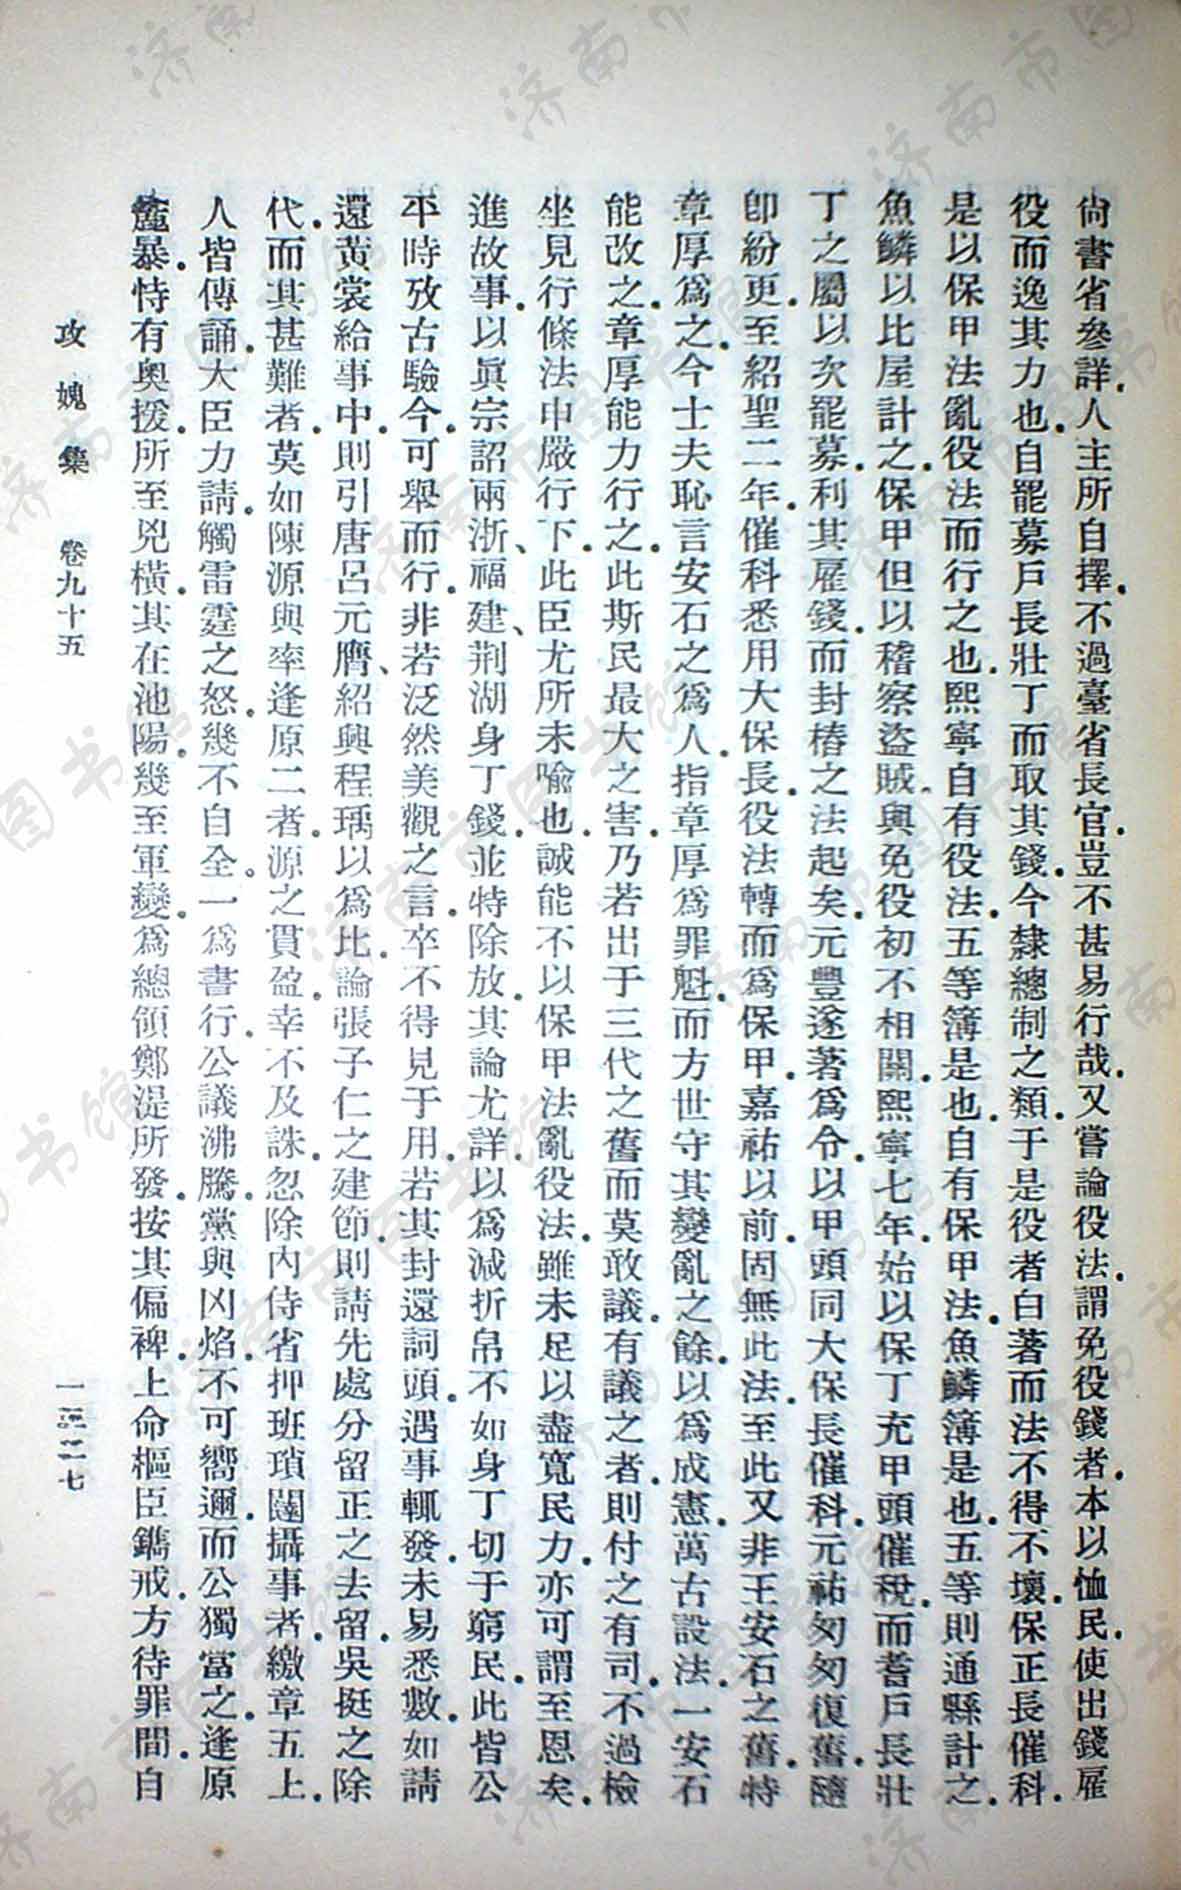 尙書省參詳。人主所自擇。不過臺省長官。豈不甚易行哉。又嘗論役法。謂免役錢者。本以恤民。使出錢雇
役而逸其力也。自罷募戶長壯丁而取其錢。今隸總制之類。于是役者白著而法不得不壞。保正長催科。
是以保甲法亂役法而行之也。熙寧自有役法。五等簿是也。自有保甲法。魚鱗簿是也。五等則通縣計之。
魚鱗以比屋計之。保甲但以稽察盜賊。與免役初不相關。熙寧七年。始以保丁充甲頭催稅。而耆戶長壯
丁之屬。以次罷募。利其雇錢。而封樁之法起矣。元豐遂著爲令。以甲頭同大保長催科。元祐匆匆復舊。隨
卽紛更。至紹聖二年。催科悉用大保長。役法轉而爲保甲。嘉祐以前。固無此法。至此又非王安石之舊。特
章厚爲之。今士夫恥言安石之爲人。指章厚爲罪魁。而方世守其變亂之餘。以爲成憲。萬古設法。一安石
能改之。章厚能力行之。此斯民最大之害。乃若出于三代之舊而莫敢議。有議之者。則付之有司。不過檢
坐見行條法。申嚴行下。此臣尤所未喻也。誠能不以保甲法亂役法。雖未足以盡寬民力。亦可謂至恩矣。
進故事。以眞宗詔兩浙、福建、荆湖身丁錢。並特除放。其論尤詳。以爲減折帛不如身丁切于窮民。此皆公
平時攷古驗今。可舉而行。非若泛然美觀之言。卒不得見于用。若其封還詞頭。遇事輒發。未易悉數。如請
還黃裳給事中。則引唐呂元膺、紹興程瑀以爲比。論張子仁之建節。則請先處分留正之去留。吳挺之除
代。而其甚難者。莫如陳源與率逢原二者。源之貫盈。幸不及誅。忽除內侍省押班瑣闥攝事者。繳章五上。
人皆傳誦。大臣力請。觸雷霆之怒。幾不自全。一爲書行。公議沸騰。黨與凶焰。不可嚮邇。而公獨當之。逢原
麤暴。恃有奧援。所至兇橫。其在池陽。幾至軍變。爲總領鄭湜所發。按其偏裨。上命樞臣鐫戒。方待罪間。自
攻媿集 卷九十五
一三二七